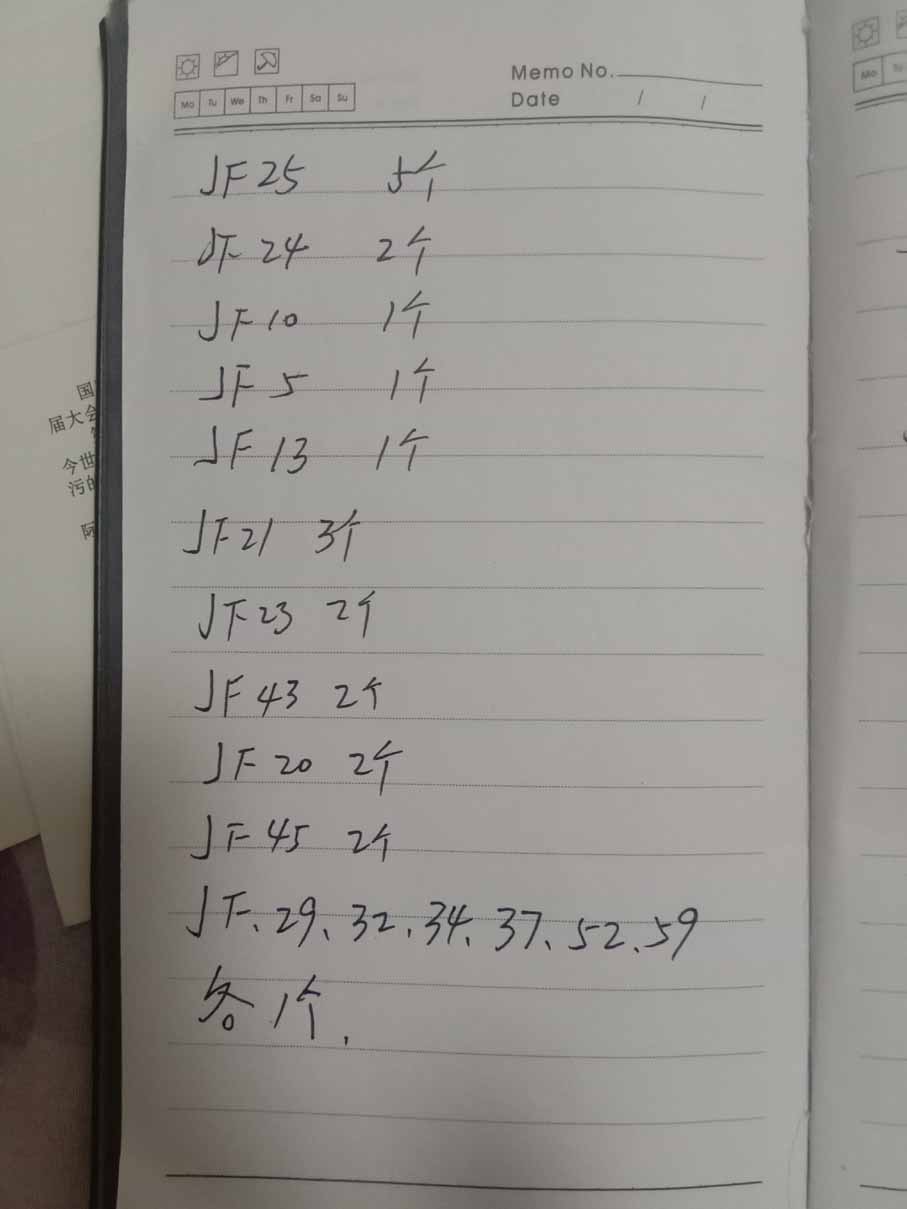 Memo No.
Mo Tu We Th Fr Sa Su
Date / /
JF 25 5个
JF 24 2个
JF 10 1个
JF 5 1个
JF 13 1个
JF 21 3个
JF 23 2个
JF 43 2个
JF 20 2个
JF 45 2个
JF、29、32、34、37、52、59
各1个.
国
届大会
今世
污的
阿
Mo Tu